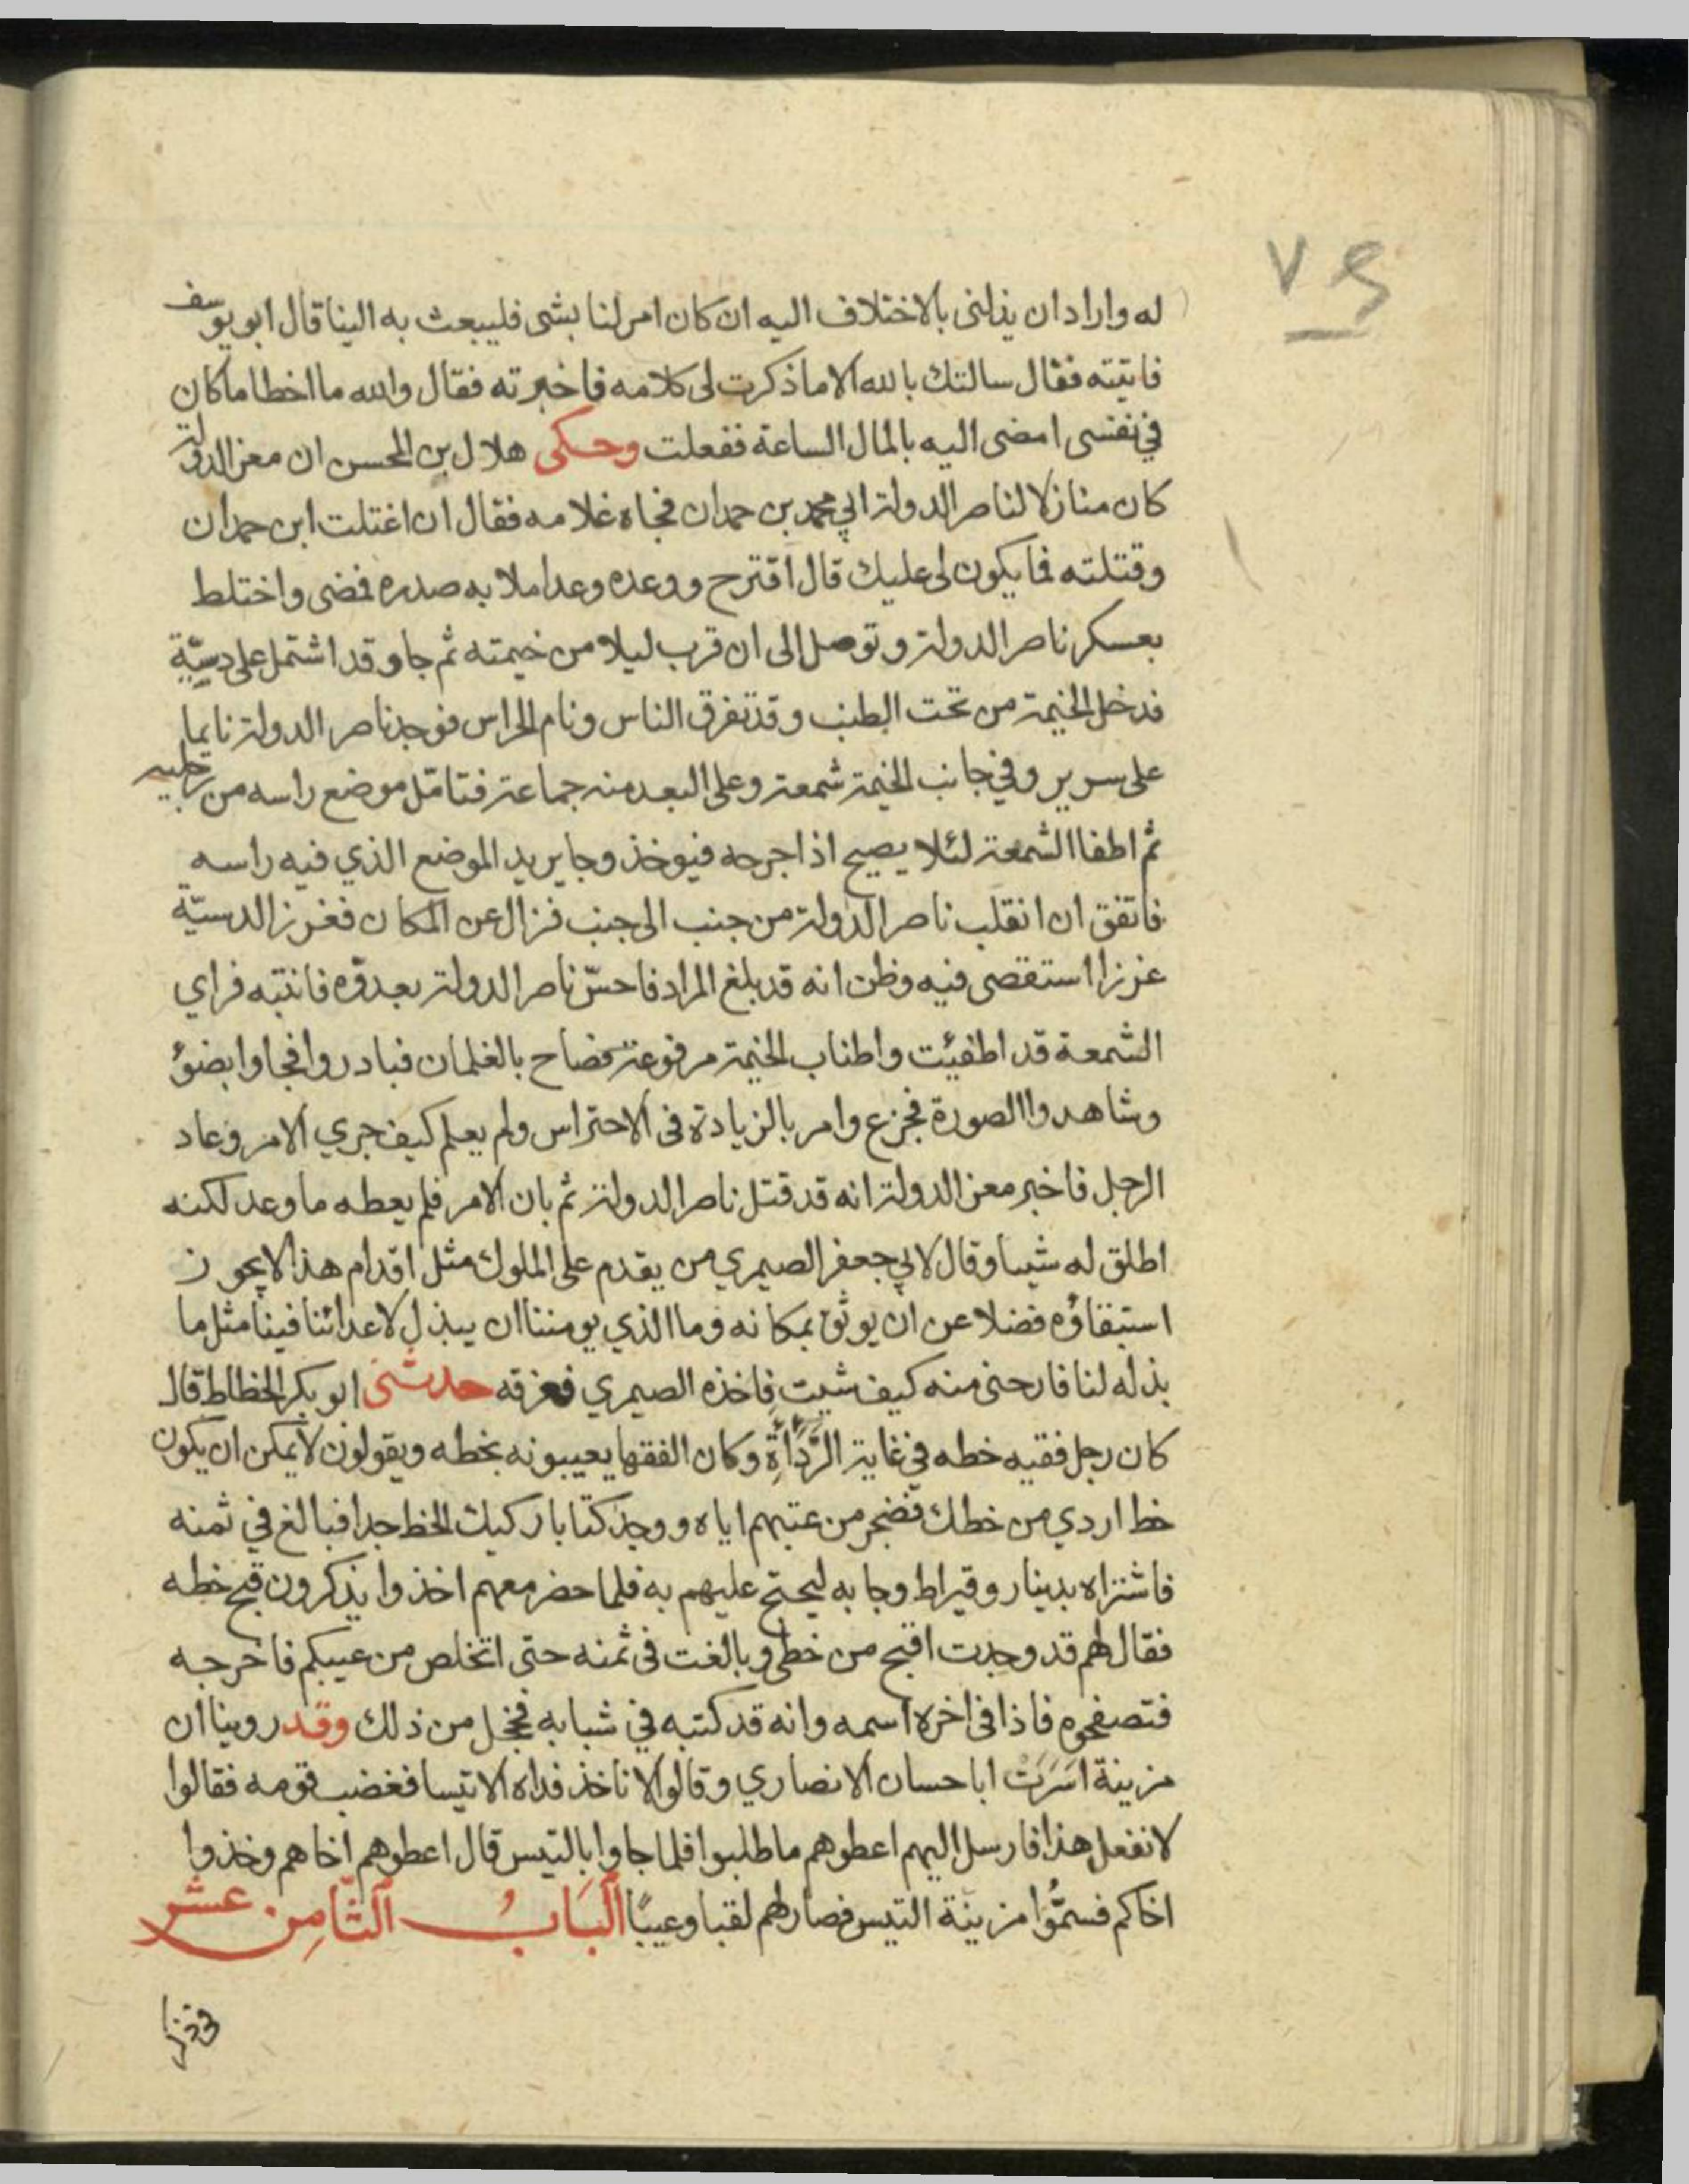 ٧٤
له واراد ان يذلنى بالاختلاف اليه ان كان امر لنا بشى فليبعث به الينا قال ابو يوسف
فاتيته فقال سالتك بالله الا ما ذكرت لى كلامه فاخبرته فقال والله ما اخطا ما كان
في نفسى امضى اليه بالمال الساعة ففعلت وحكى هلال بن المحسن ان معز الدولة
كان منازلا لناصر الدولة ابي محمد بن حمدان فجاه غلامه فقال ان اغتلت ابن حمدان
وقتلته فما يكون لى عليك قال اقترح ووعده وعدا ملا به صدره فمضى واختلط
بعسكر ناصر الدولة وتوصل الى ان قرب ليلا من خيمته ثم جا وقد اشتمل على دسيّة
فدخل الخيمة من تحت الطنب وقد تفرق الناس ونام الحراس فوجد ناصر الدولة نايما
على سرير وفي جانب الخيمة شمعة وعلى البعد منه جماعة فتامّل موضع راسه من رجليه
ثم اطفا الشمعة لئلا يصيح اذا جرحه فيوخذ وجا يريد الموضع الذي فيه راسه
فاتفق ان انقلب ناصر الدولة من جنب الى جنب فزال عن المكان فغرز الدسيّة
غرزا استقصى فيه وظن انه قد بلغ المراد فاحسّ ناصر الدولة بعدوّه فانتبه فراي
الشمعة قد اطفيئت واطناب الخيمة مرفوعة فصاح بالغلمان فبادروا فجاوا بضوُ
وشاهدوا الصورة فجزع وامر بالزيادة فى الاحتراس ولم يعلم كيف جري الامر وعاد
الرجل فاخبر معز الدولة انه قد قتل ناصر الدولة ثم بان الامر فلم يعطه ما وعد لكنه
اطلق له شيا وقال لابي جعفر الصيمري من يقدم على الملوك مثل اقدام هذا لا يجوز
استبقاؤه فضلا عن ان يوثق بمكانه وما الذي يومننا ان يبذل لاعدائنا فينا مثل ما
بذله لنا فارحنى منه كيف شيت فاخذه الصيمري فغرقه حدثنى ابو بكر الخطاط قال
كان رجل فقيه خطه في غاية الرَّدَأَةِ وكان الفقها يعيبونه بخطه ويقولون لا يمكن ان يكون
خط اردي من خطك فضجر من عتبهم اياه ووجد كتابا ركيك الخط جدا فبالغ في ثمنه
فاشتراه بدينار وقيراط وجا به ليحتج عليهم به فلما حضر معهم اخذوا يذكرون قبح خطه
فقال لهم قد وجدت اقبح من خطى وبالغت فى ثمنه حتى اتخلص من عيبكم فاخرجه
فتصفحوه فاذا فى اخره اسمه وانه قد كتبه في شبابه فخجل من ذلك وقد روينا ان
مزينة اسَرَتْ ابا حسان الانصاري وقالوا لا ناخذ فداه الا تيسا فغضب قومه فقالوا
لا نفعل هذا فارسل اليهم اعطوهم ما طلبوا فلما جاوا بالتيس قال اعطوهم اخاهم وخذوا
اخاكم فسمُّوا مزينة التيس فصار لهم لقبا وعيبًا اَلْبَابُ الثَّامِن عشر